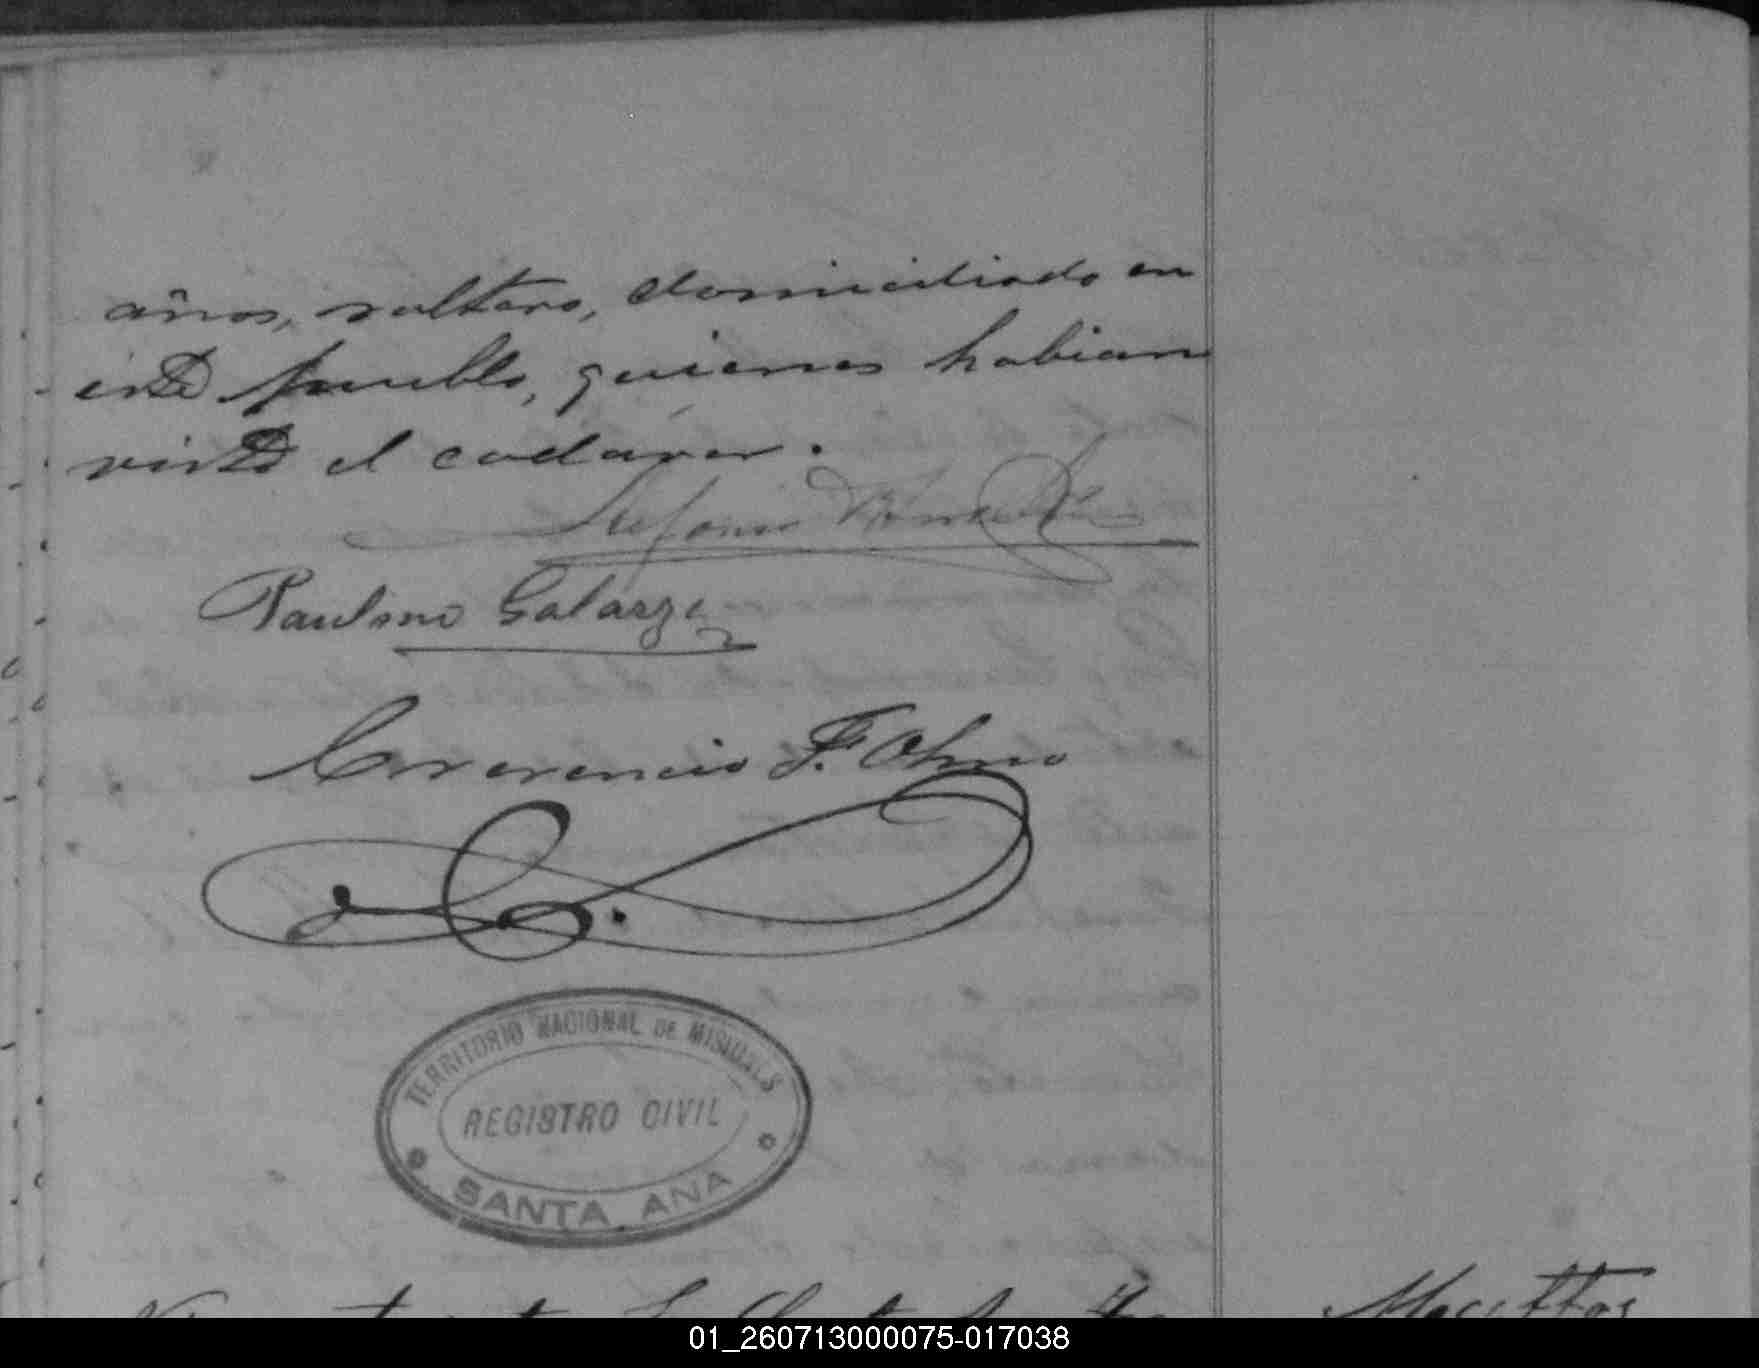 años, soltero, domiciliado en
este pueblo, quienes habian
visto el cadáver.
Paulino Galarza
Crecencio F. Olmo
TERRITORIO NACIONAL DE MISIONES
REGISTRO CIVIL
SANTA ANA
01_260713000075-017038